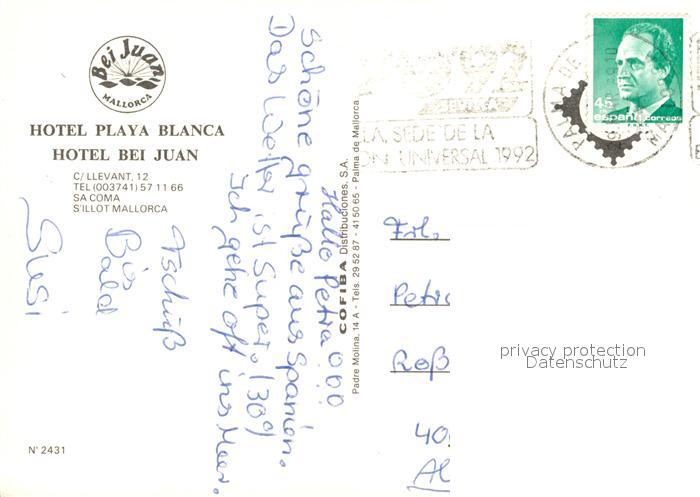 Bei Juan
MALLORCA
HOTEL PLAYA BLANCA
HOTEL BEI JUAN
C/ LLEVANT, 12
TEL (003741) 57 11 66
SA COMA
S'ILLOT MALLORCA
Hallo Petra000
Schöne grüße aus Spanien.
Das Wetter ist Super. (30°)
Ich gehe oft ins Meer.
Tschüß
Bis
Bald
Susi
Nº 2431
COFIBA Distribuciones, S.A.
Padre Molina, 14 A - Tels. 29 52 87 - 41 50 65 - Palma de Mallorca
1992
LA, SEDE DE LA
ON UNIVERSAL 1992
PALMA DE
45
españa correos
Frl.
Petr
Roß
40
Al
privacy protection
Datenschutz